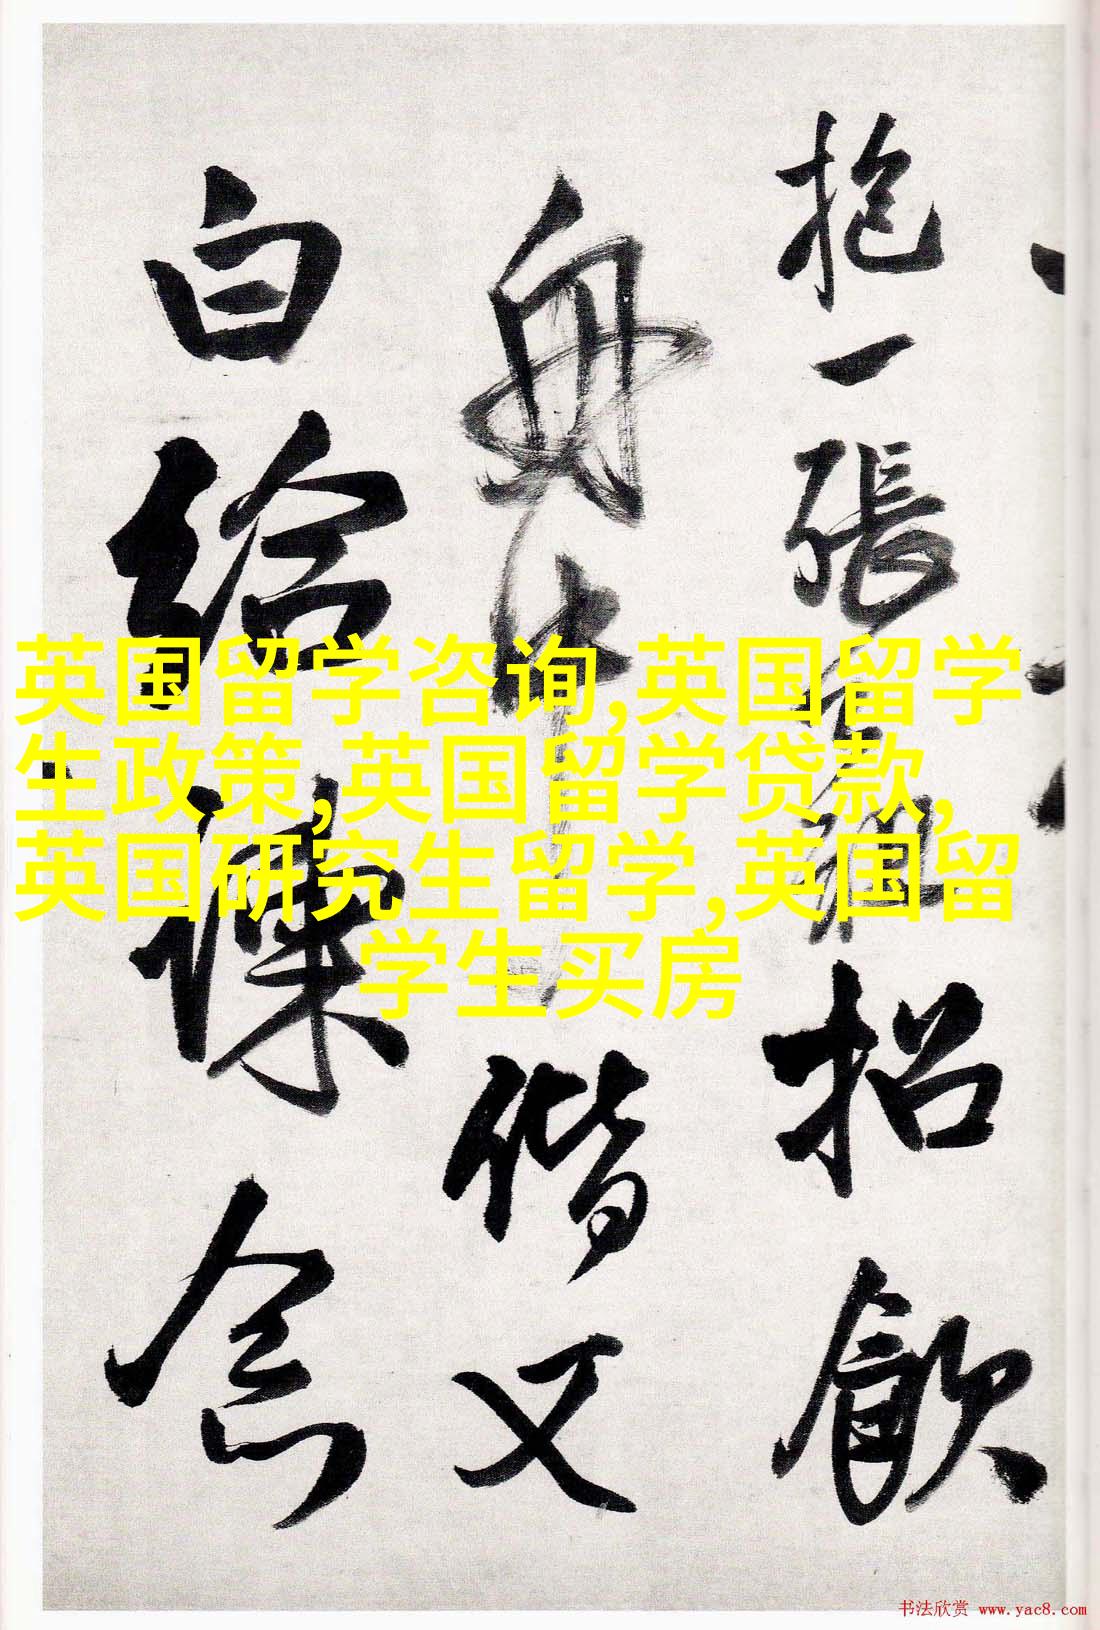 抱一張
招飲
舟中
偕又
白給諫念
英国留学咨询,英国留学
生政策,英国留学贷款,
英国研究生留学,英国留
学生买房
书法欣赏 www.yac8.com